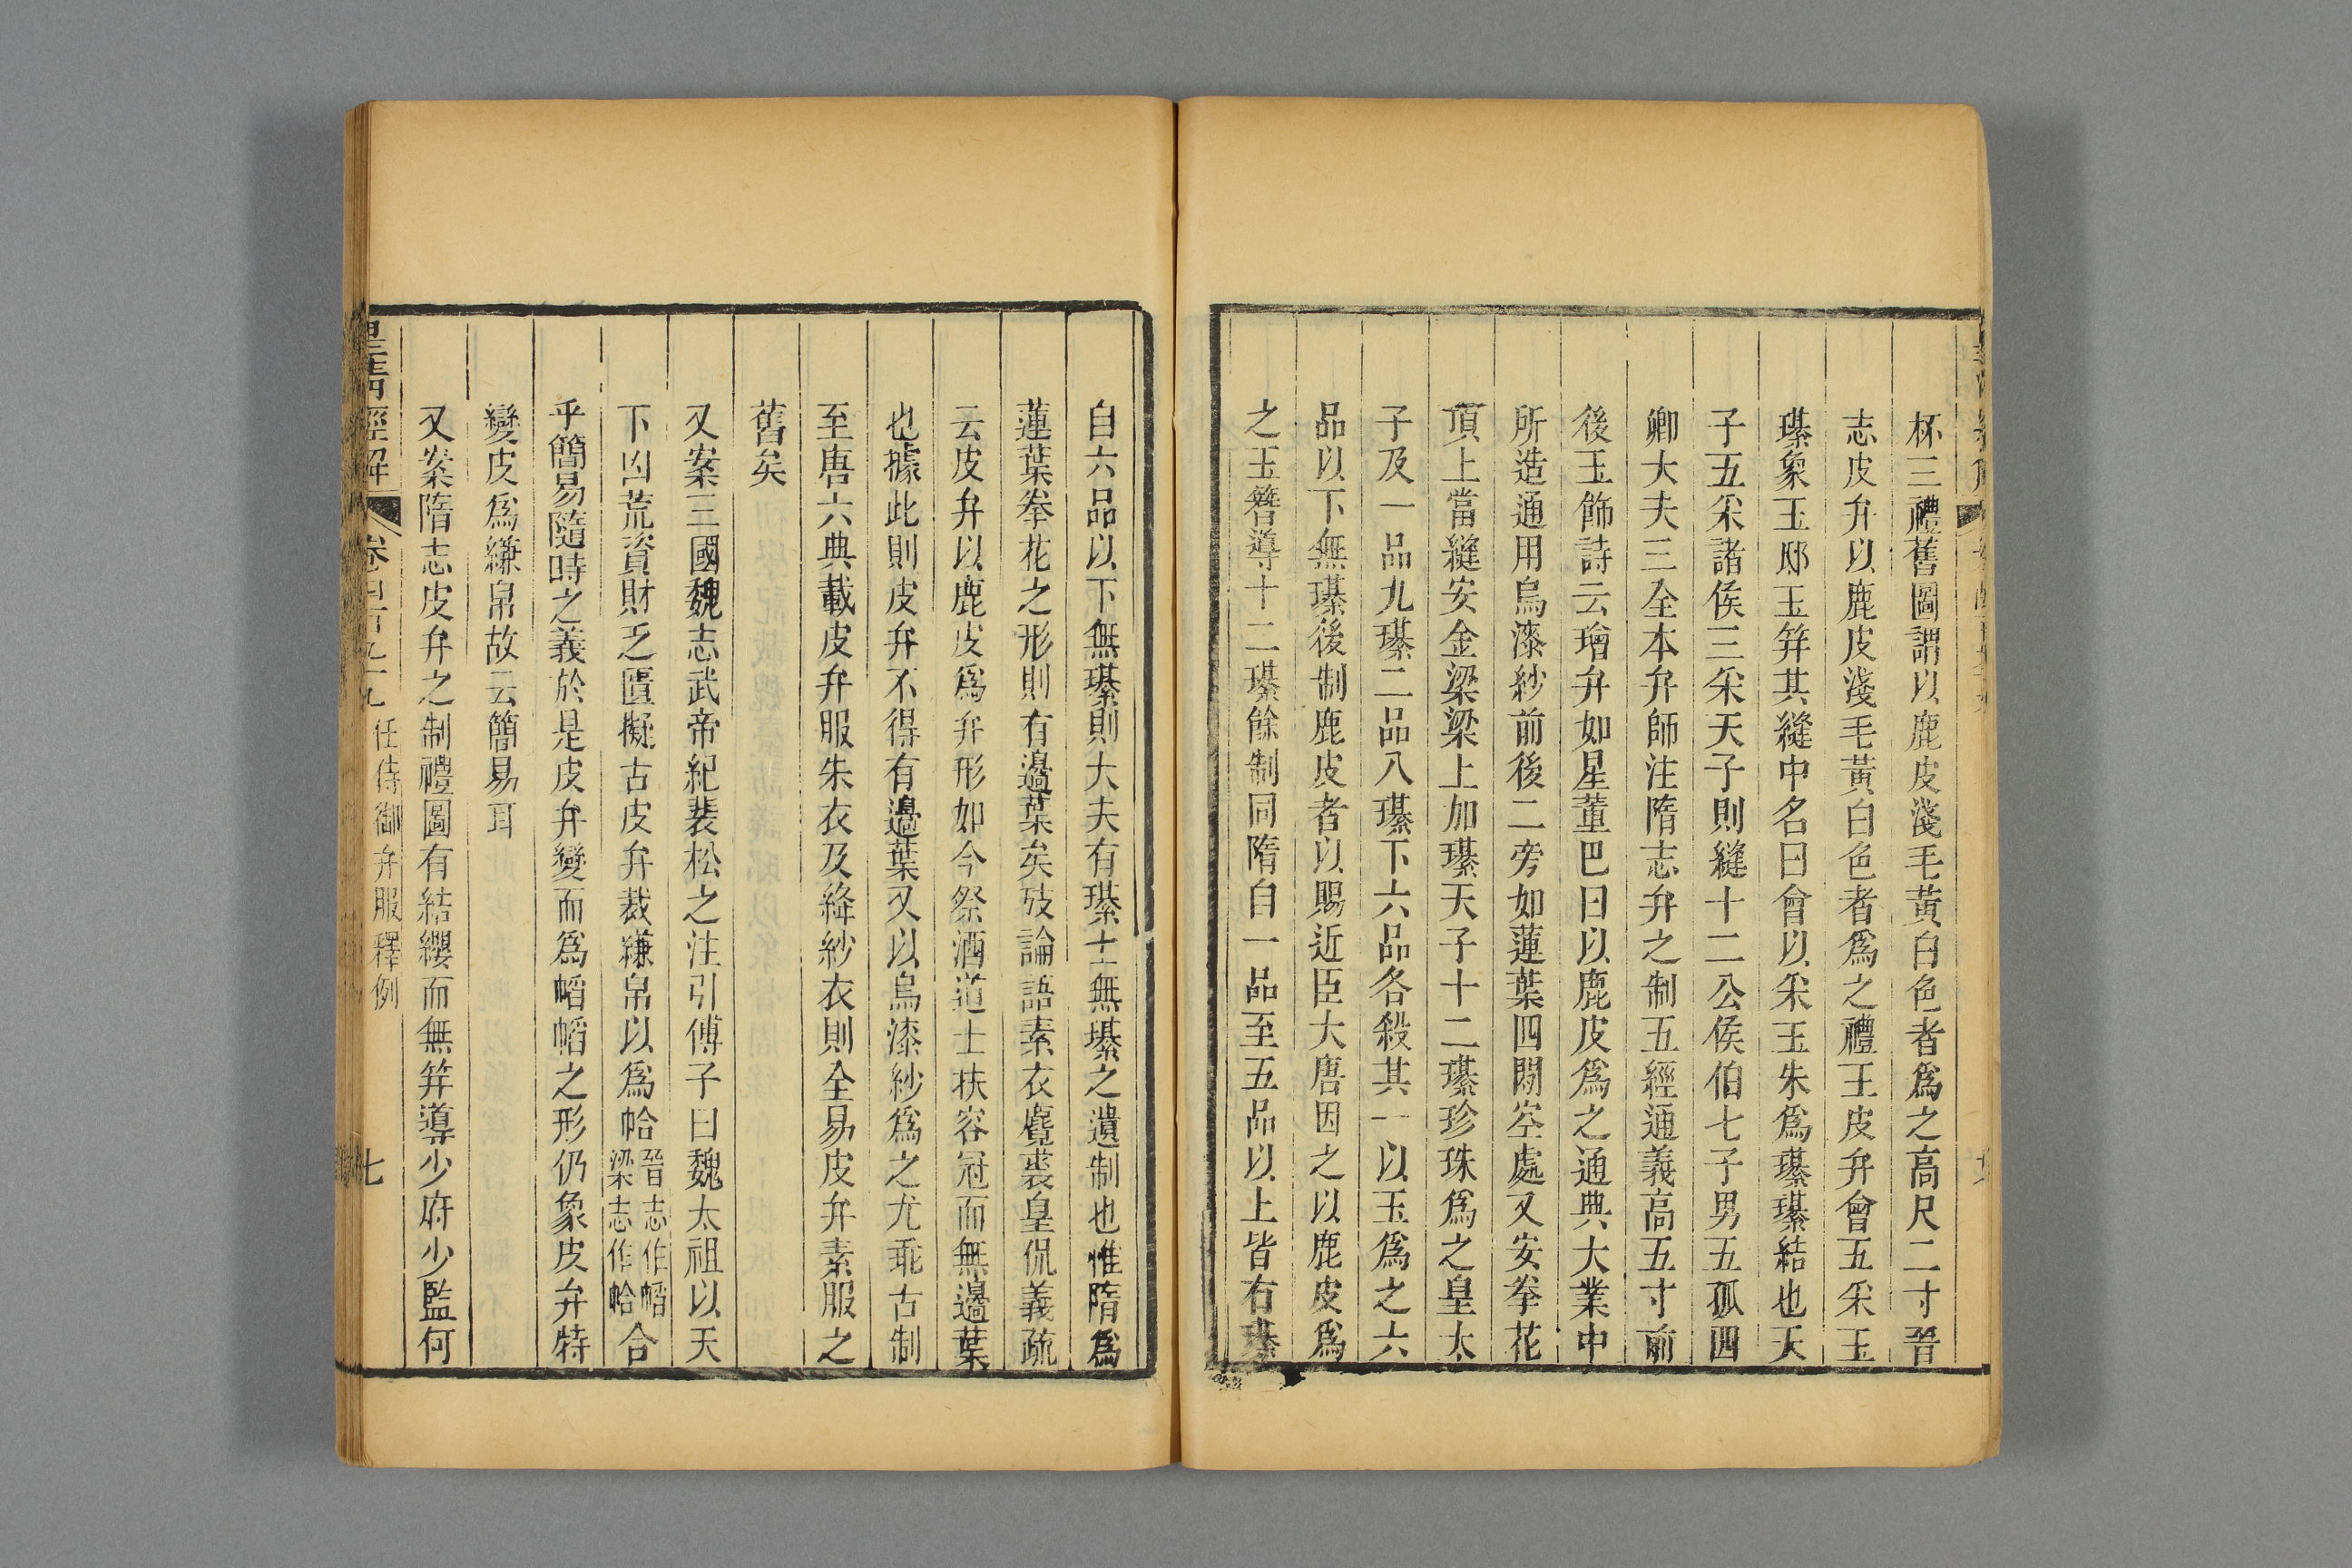 杯三禮舊圖謂以鹿皮淺毛黃白色者爲之高尺二寸晉
志皮弁以鹿皮淺毛黃白色者爲之禮王皮弁會五采玉
璂象玉邸玉笄其縫中名曰會以采玉朱爲璂璂結也天
子五采諸侯三采天子則縫十二公侯伯七子男五孤四
卿大夫三全本弁師注隋志弁之制五經通義高五寸前
後玉飾詩云璯弁如星董巴曰以鹿皮爲之通典大業中
所造通用烏漆紗前後二旁如蓮葉四閒空處又安拳花
頂上當縫安金梁梁上加璂天子十二璂珍珠爲之皇太
子及一品九璂二品八璂下六品各殺其一以玉爲之六
品以下無璂後制鹿皮者以賜近臣大唐因之以鹿皮爲
之玉簪導十二璂餘制同隋自一品至五品以上皆有璂
自六品以下無璂則大夫有璂士無璂之遺制也惟隋爲
蓮葉拳花之形則有邊葉矣攷論語素衣麑裘皇侃義疏
云皮弁以鹿皮爲弁形如今祭酒道士扶容冠而無邊葉
也據此則皮弁不得有邊葉又以烏漆紗爲之尤乖古制
至唐六典載皮弁服朱衣及絳紗衣則全易皮弁素服之
舊矣
又案三國魏志武帝紀裴松之注引傅子曰魏太祖以天
下凶荒資財乏匱擬古皮弁裁縑帛以爲帢晉志作幍梁志作帢合
乎簡易隨時之義於是皮弁變而爲幍幍之形仍象皮弁特
變皮爲縑帛故云簡易耳
又案隋志皮弁之制禮圖有結纓而無笄導少府少監何
皇清經解 卷 任侍御弁服釋例 七